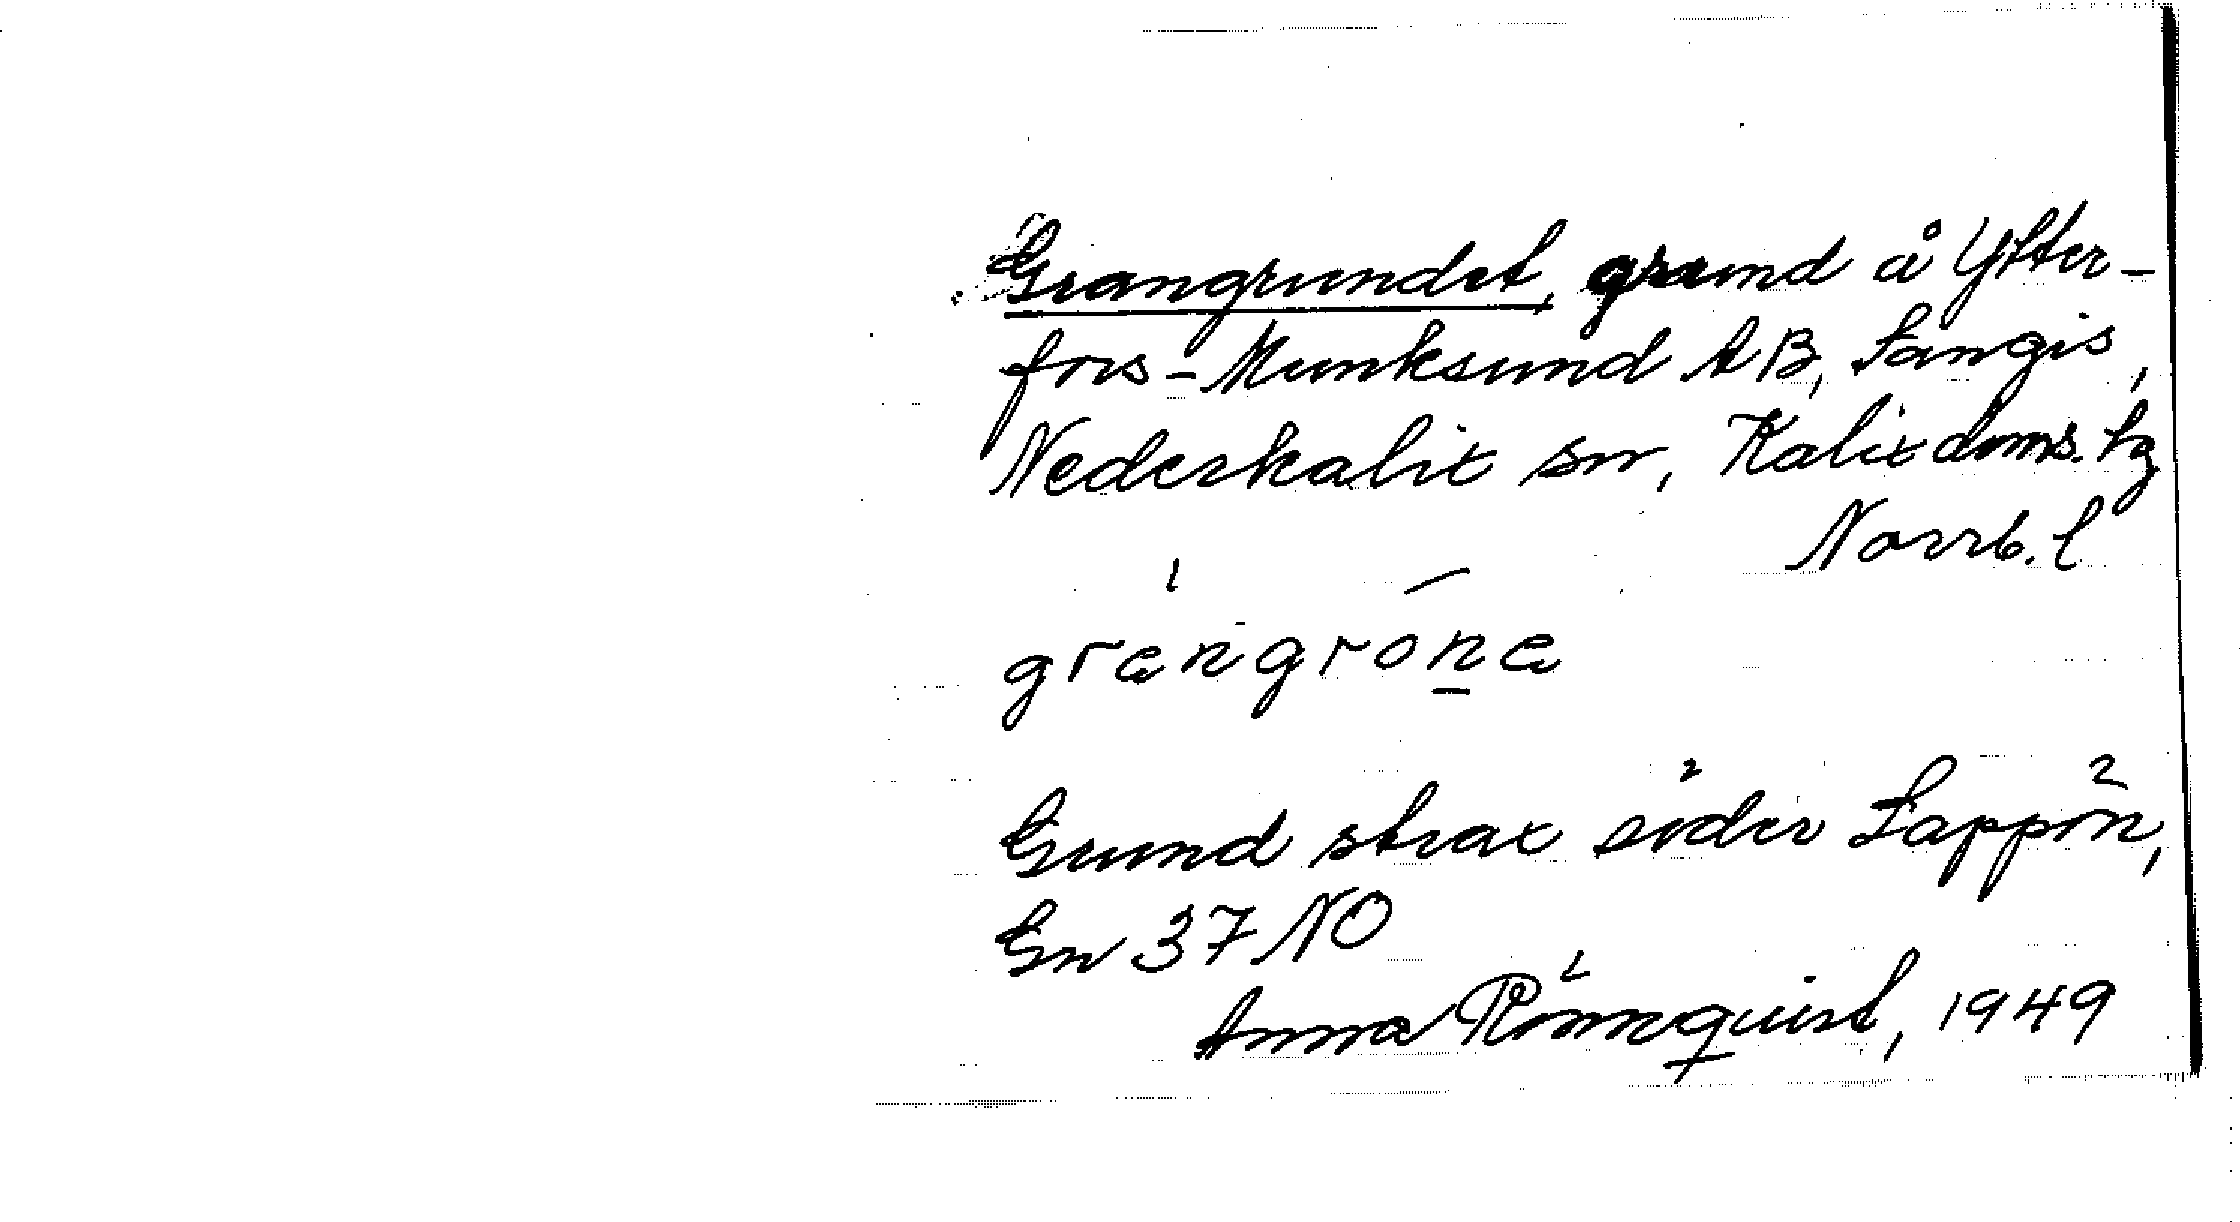 Grangrundet, grund å Ytter-
fors-Munksund AB, Sangis,
Nederkalix sn, Kalix doms. tg
Norrb. l
grangrona
Grund strax söder Lappön,
Gn 37 NO
Anna Rönnquist, 1949